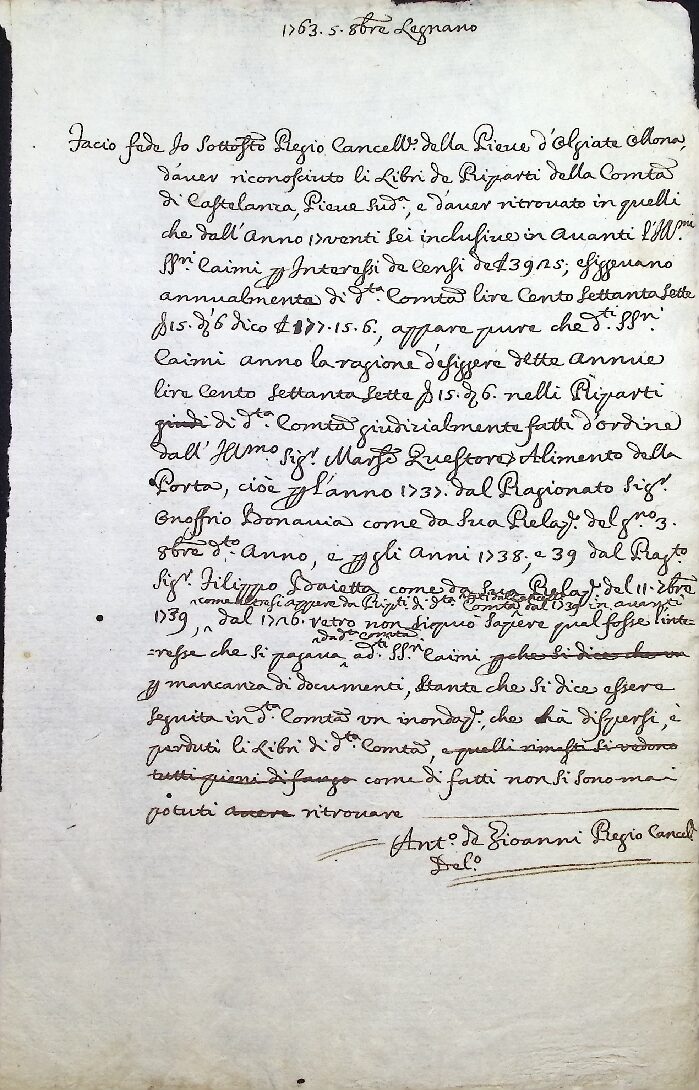 1763. 5. 8bre Legnano
Facio fede Io Sottostto Regio Cancellre. della Pieve d'Olgiate Ollona,
d'aver riconosciuto li Libri de Riparti della Comtà
di Castelanza, Pieve Sudа., e d'aver ritrovato in quelli
che dall'Anno 17venti sei inclusive in Avanti l'Illmi
SSri. Caimi per Interessi de Censi de £ 3925; esiggevano
annualmente di dta. Comtà lire Cento Settanta Sette
ß 15. d 6 dico £ 177.15.6., appare pure che dti. SSri.
Caimi anno la ragione d'esiggere dette Annue
lire Cento Settanta Sette ß 15. d 6. nelli Riparti
giudi di dta. Comtà giudizialmente fatti d'ordine
dall'Illmo Sigr. Marse Questore Alimento della
Porta, cioè per l'anno 1737. dal Ragionato Sigr.
Onoffrio Bonavia come da Sua Relaze. del gno 3.
8bre dto. Anno, e per gli Anni 1738, e 39 dal Ragto
Sigr. Filippo Baietta come da Sua Relaze. del 11. 7bre
come altresi appare da Ripti di dta. Comtà dal 1739 in avanti
1739, dal 1726. retro non si può sapere qual fosse l'inte=
da da. Comtà
=resse che si pagava a dti. SSri. Caimi perche si dice che un
per mancanza di documenti, stante che si dice essere
seguita in dta. Comtà un inondaze., che hà dispersi, è
perduti li Libri di dta. Comtà, e quelli rimasti si vedono
tutti pieni di fango come di fatti non si sono mai
potuti avere ritrovare
Anto. de Gioanni Regio Cancelre
Delo.